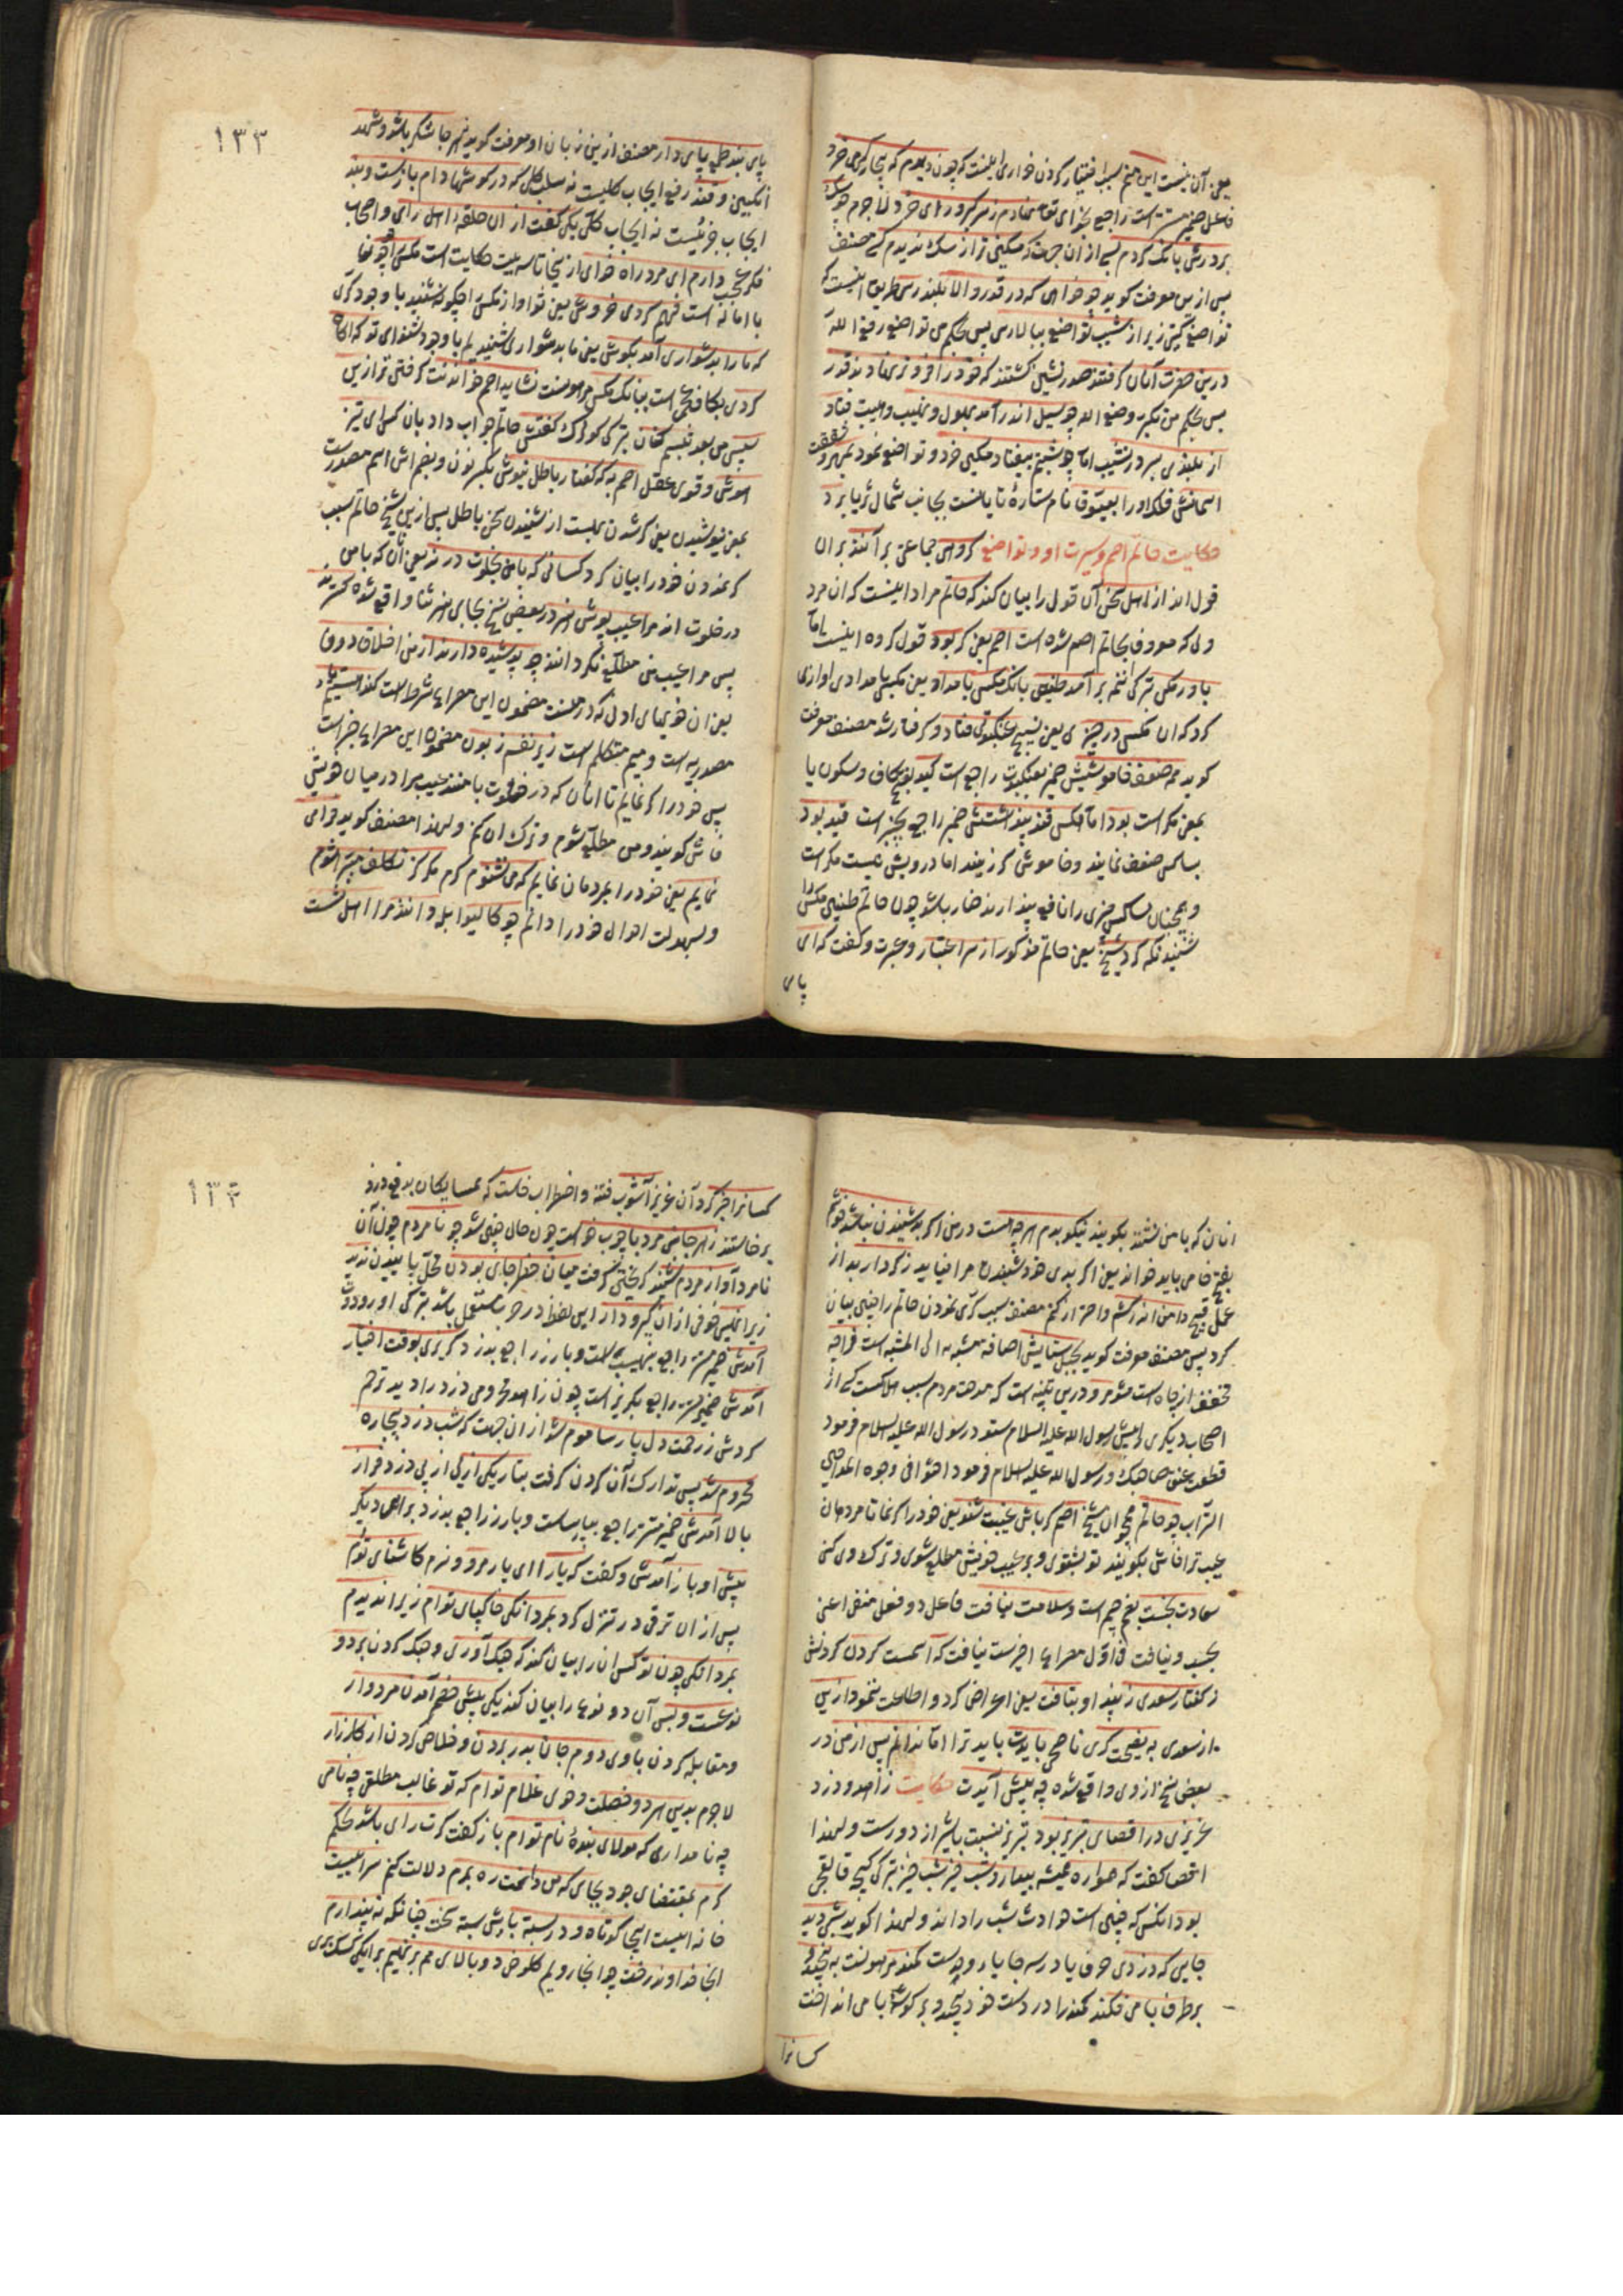 یعنی آن نیست این سبب اختیار کردن خواری اینست که چون دیدم که بیچارگی می خرد
فاعلش ضمیر مستتر است راجع بخدای تعالی نهادم ز سر کبر و رای خرد لاجرم چو سگ
بر درش بانگ کردم بسی از آن جهت که مسکین تر از سگ ندیدم کسی مصنف
پس ازین معرفت گوید چو خواهی که در قدر والا بلند رسی طریق اینست که
تواضع گزینی زیرا ز شیب تواضع ببالا رسی پس بحکم من تواضع رفعه الله
درین حضرت آنان گرفتند صدر نشین گشتند که خود را فروتر نهادند قدر
پس بحکم من تکبر وضعه الله چو سیل اندر آمد بهول و نهیب و هیبت فتاد
از بلندی بسر در نشیب اما چو شبنم بیفتاد مسکین خرد و تواضع نمود بمهر و شفقت
اسمانش فلک او را بعیوق نام ستاره تابانست بجانب شمال ثریا برد
حکایت حاتم اصم و سیرت او در تواضع گروهی جماعتی برآنند بران
قول اند از اهل سخن آن قول را بیان کند که حاتم مراد اینست که ان مرد
ولی که معروف بحاتم اصم شده است اصم یعنی کر بود قول کرده اینست اما
باور مکن ترکی اننمه برآمد طنین بانک مکسی بامداد یعنی مکسی بامدادی اوازی
کرد که ان مکس در چیزی یعنی نسیج عنکبوتی فتاد و گرفتار شد مصنف معرفت
گوید همه ضعف خاموشیش ضمیر بعنکبوت راجع است کید بفتح کاف و سکون یا
بمعنی مکر است بود اما مکس قند پنداشتش ضمیر راجع بچیز است قید بود
بسا کسی ضعف نمایند و خاموشی گزینند اما درویش نیست مکر است
و همچنان بسا کس چیزی را نافع پندارند ضار باشد چون حاتم طنین مکس را
شنید نگه کرد شیخ یعنی حاتم مذکور از سر اعتبار و عبرت و گفت که ای
پای
۱۳۳
پای بند طمع پای دار مصنف ازین زبان او معرفت گوید نه هر جا شکر باشد و شهد
انگبین و قند رفع ایجاب کلیست نه سلب کلی که در گوشها دام بازست و بند
ایجاب جزئیست نه ایجاب کلی یکی گفت از ان حلقه اهل رای و اصحاب
فکر عجب دارم ای مرد راه خدای از ینجا تا سه بیت حکایت است مکس را چو تعا
با اماله است فهم کردی خروش یعنی تو اواز مکس را چگونه شنیدی با وجود کری
که ما را بدشواری آمد بگوش یعنی ما بدشواری شنیدیم با وجود شنوای تو که آگاه
کردی بکاف عجمی است ببانگ مکس مرهونست نشاید اصم خواندنت گرفتی تر ازین
سپس من بعد تبسم کنان ترکی کولرک گفتش حاتم جواب داد بان کس ای تیز
هوش و قوی عقل اصم به که گفتار باطل نیوش بکسر نون و بضم اش اسم مصدرست
بمعنی نیوشیدن یعنی کر شدن بهست از شنیدن سخن باطل پس ازین شیخ حاتم سبب
کر نمودن خود را بیان کرد کسانی که با من بخلوت درند یعنی آنان که با من
در خلوت اند مرا عیب پوش هنر در بعضی نسخ بجای هنر ثنا واقع شده گسترند
پس مرا عیب من مطلع نگردانند چو پوشیده دارند از من اخلاق دون
یعنی ان خویهای ادنی که در منست مضمون این مصراع شرط است کند هستیم
مصدریه است و میم متکلم است زیر نفسم زبون مضمون این مصراع جزاست
پس خود را کر نمایم تا آنان که در خلوت با منند عیب مرا در میان خویش
فاش گویند و من مطلع شوم و ترک ان کنم و لهذا مصنف گوید فرامی
نمایم یعنی خود را بمردمان نمایم که می نشنوم کرم مگر کز تکلف مبرا شوم
و بسهولت احوال خود را دانم چو کالیوا بله دانند مرا اهل نشست
انان که با من نشینند بگویند نیکو بدم هر چه هست در من اگر بد شنیدن نباشد خوشم
بفتح خا می باید خواند یعنی اگر بدی خود شنیدن مرا نیاید ز کردار بد از
عمل قبیح دامن اندر کشم و احتراز کنم مصنف سبب کری نمودن حاتم را چنین بیان
کرد پس مصنف معرفت گوید بحبل ستایش اضافه مشبه به الی المشبه است فراچه
مخفف از چاه است مشو مرو درین تنبیه است که مدحت مردم سبب هلاکست کسی از
اصحاب دیگری را پیش رسول الله علیه السلام ستود رسول الله علیه السلام فرمود
قطعت عنق صاحبک و رسول الله علیه السلام فرمود احثوا فی وجوه المداحین
التراب چو حاتم همچو ان شیخ اصم کر باش عیبت شنو یعنی خود را کر نما تا مردمان
عیب ترا فاش بگویند تو بشنوی و بر عیب خویش مطلع شوی و ترک وی کنی
سعادت نجست بفتح جیم است و سلامت نیافت فاعل دو فعل منفی اعنی
نجست و نیافت فی اول مصراع اخیرست نیافت که آنکست گردن کردنش
ز گفتار سعدی ز پند او بتافت یعنی اعراض کرد و اطاعت ننمود ازین
از سعدی به نصیحت گری ناصحی بایدت باید ترا اما ندانم پس از من در
بعض نسخ از وی واقع شده چه پیش آیدت حکایت زاهد و دزد
عزیزی در اقصای تبریز بود تبریز نسبت بشیراز دورست و لهذا
اقصا گفت که هواره همیشه بیدار و شب خیز شب خیز ترکی کیجه قالقیجی
بود انکس که چنین است حوادث شب را داند و لهذا گوید شبی دید
جایی که دزدی حرف یا در سه جا یاء وحدست کمند مرهونست به پیچید و
بر طرف بامی فکند کمند را در دست خود پیچید و بر گوشه بامی انداخت
کسانرا
۱۳۴
کسانرا خبر کرد آن عزیز آشوب فتنه و اضطراب خاست که همسایگان بدفع دزد
برخاستند ز هر جانبی مرد با چوب خواست چون حال چنین شد چو نامردم چون آن
نامرد آواز مردم شنید گریختن گرفت میان خطر جای بودن محل پاییدن ندید
زیرا نهیبی خوفی از ان گیر و دار این لفظ در حرب مستعمل باشد ترکی اورودوت
آمدش ضمیر مستتر راجع بنهیب است و بارز راجع بدزد گریزی بوقت اختیار
آمدش ضمیر مستتر راجع بگریز است چون زاهد محرومی دزد را دید ترحم
کردش ز رحمت دل پارسا موم شد از ان جهت که شب دزد بیچاره
محروم شد پس تدارک آن کردن گرفت بتاریکی از پی از پی دزد فراز
بالا آمدش ضمیر مستتر راجع بپارساست و بارز راجع بدزد براهی دیگر
پیش او باز آمدش و گفت که یارا ای یار مرو و نرم کاشنای توام
پس از ان ترقی در تنزل کرد بمردانگی خاکپای توام زیرا ندیدم
بمردانگی چون تو کس ان را بیان کند که جنگ آوری و جنگ کردن بر دو
نوعست و بس آن دو نوع را بیان کند یکی پیش خصم آمدن مردوار
و مقابله کردن با وی دوم جان بدر بردن و خلاص کردن از کارزار
لاجرم بدین هر دو خصلت دهی غلام توام که تو غالب مطلق چه نامی
چه نام داری که مولای بنده نام توام باز گفت گرت رای باشد بحکم
کرم بمقتضای جود بجای که من دانمت ره برم دلالت کنم سرا عیبیت
خانه ایست اینجا کوتاه و در بسته بابش بسته سخت چنانکه نه پندارم
انجا خداوند رخت چو انجا رویم کلوخی دو بالای هم بر نهیم بر یکی کسک بری